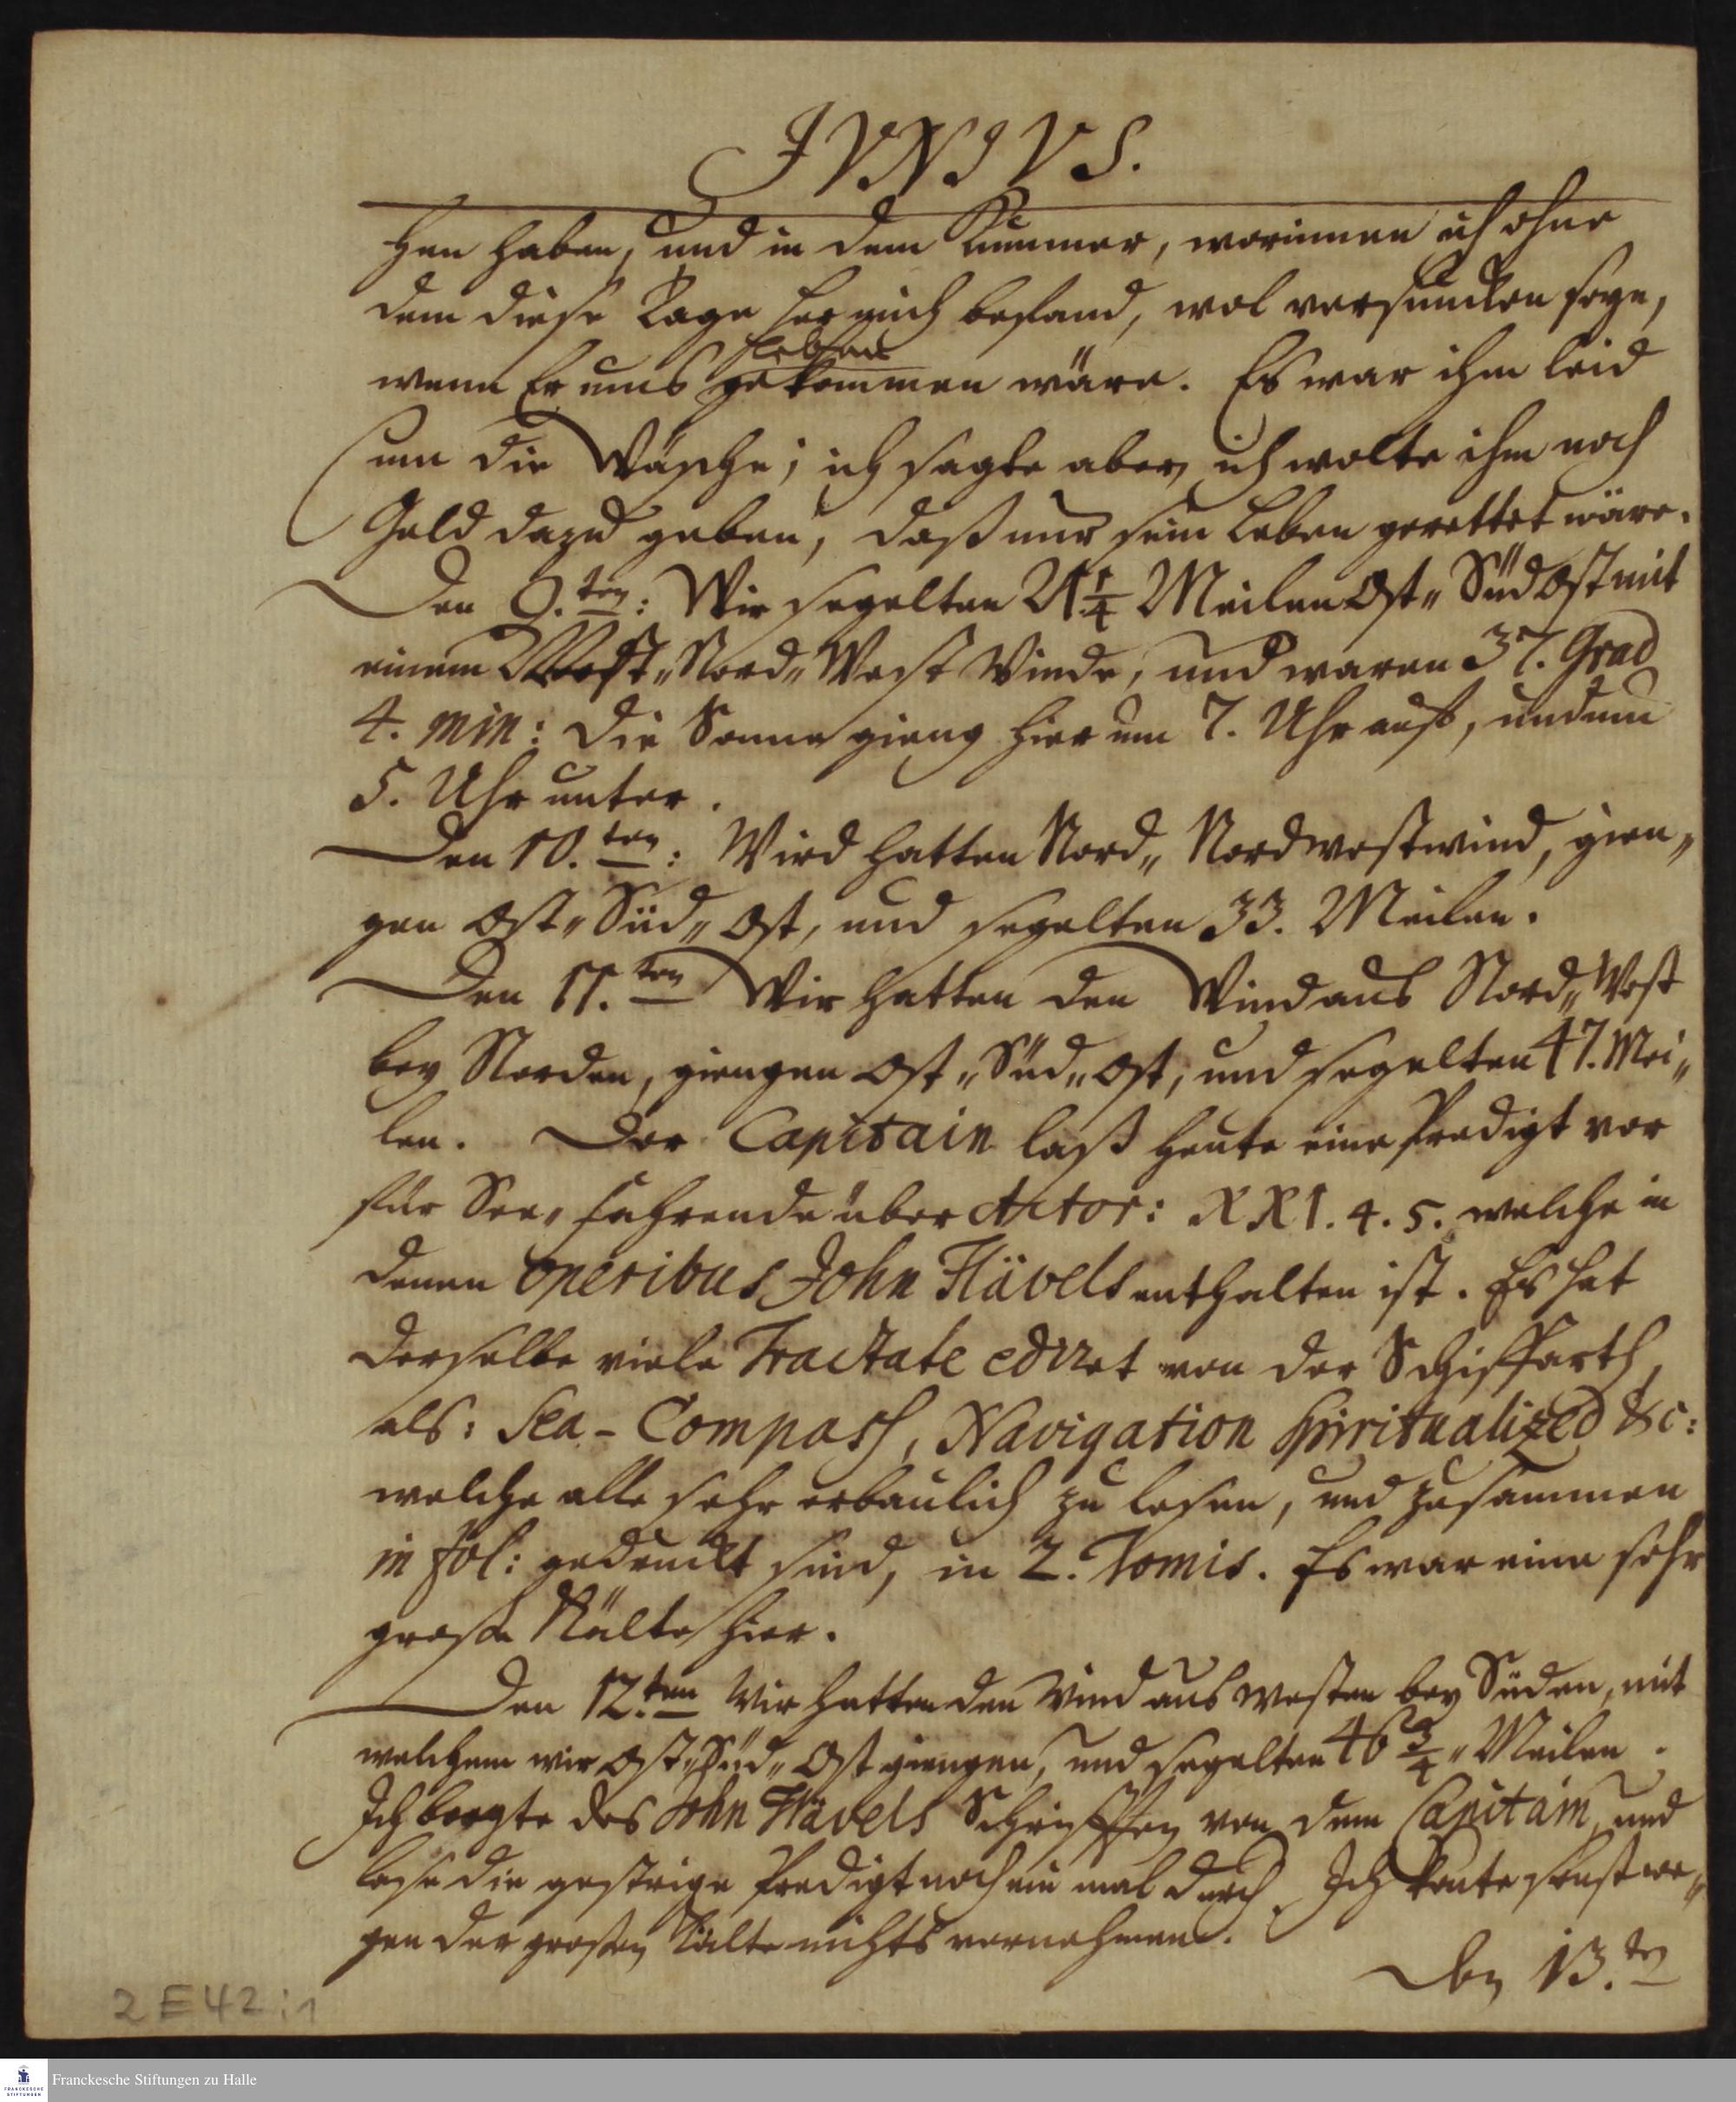 JVNIVS.
hen haben, und in dem Kummer, worinnen ich ohne
dem diese Tage her mich befand, wol versuncken seyn,
wenn Er ums Leben
gekommen wäre. Es war ihm leid
um die Wäsche; ich sagte aber, ich wolte ihm noch
Geld dazu geben, daß nur sein Leben gerettet wäre.
Den 9.ten: Wir segelten 21 1/4 Meilen Ost„ Süd Ost mit
einem West„ Nord„ West Winde, und waren 37. Grad
4. min: Die Sonne gieng hier um 7. Uhr auf, und um
5. Uhr unter.
Den 10.ten: Wird hatten Nord„ Nordwestwind, gien„
gen Ost„ Süd„ Ost, und segelten 33. Meilen.
Den 11.ten Wir hatten den Wind aus Nord„ West
bey Norden, giengen Ost„ Süd„ Ost, und segelten 47. Mei„
len. Der Capitain laß heute eine Predigt vor
für See„ fahrende über Actor: XXI. 4. 5. welche in
denen Operibus John Flävels enthalten ist. Es hat
derselbe viele Tractate ediret von der Schiffarth,
als: Sea-Compass, Navigation Spiritualized &c:
welche alle sehr erbaulich zu lesen, und zusammen
in fol: gedruckt sind, in 2. Tomis. Es war eine sehr
große Kälte hier.
Den 12.ten Wir hatten den Wind aus Westen bey Süden, mit
welchem wir Ost„ Süd„ Ost giengen, und segelten 46 3/4 „ Meilen.
Ich borgte des John Flävels Schrifften von dem Capitain, und
lase die gestrige Predigt noch ein mal durch. Ich konte sonst we„
gen der großen Kälte nichts vornehmen.
Den 13.ten
2 E 42 : 1
FRANCKESCHE
STIFTUNGEN
Franckesche Stiftungen zu Halle